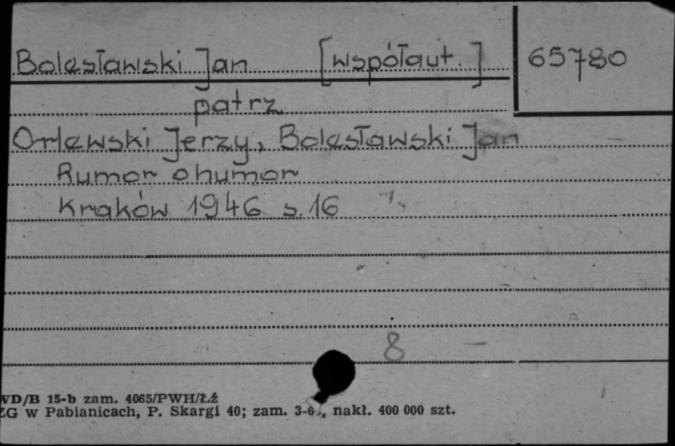 Bolesławski Jan [współaut.] 65780
patrz
Orlewski Jerzy, Bolesławski Jan
Rumor o humor
Kraków 1946 s. 16
8
WD/B 15-b zam. 4065/PWH/ŁŻ
ZG w Pabianicach, P. Skargi 40; zam. nakł. 400 000 szt.